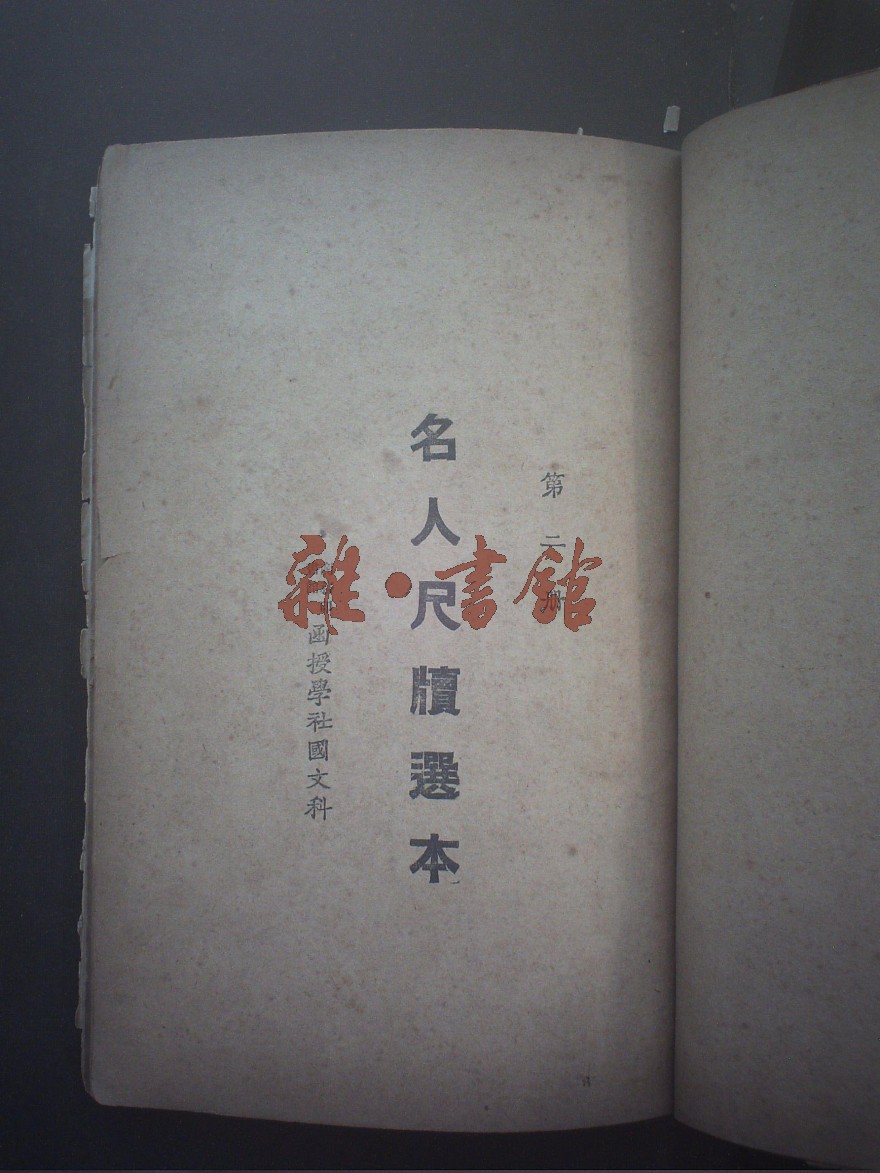 第二册
名人尺牘選本
函授學社國文科
雜·書館